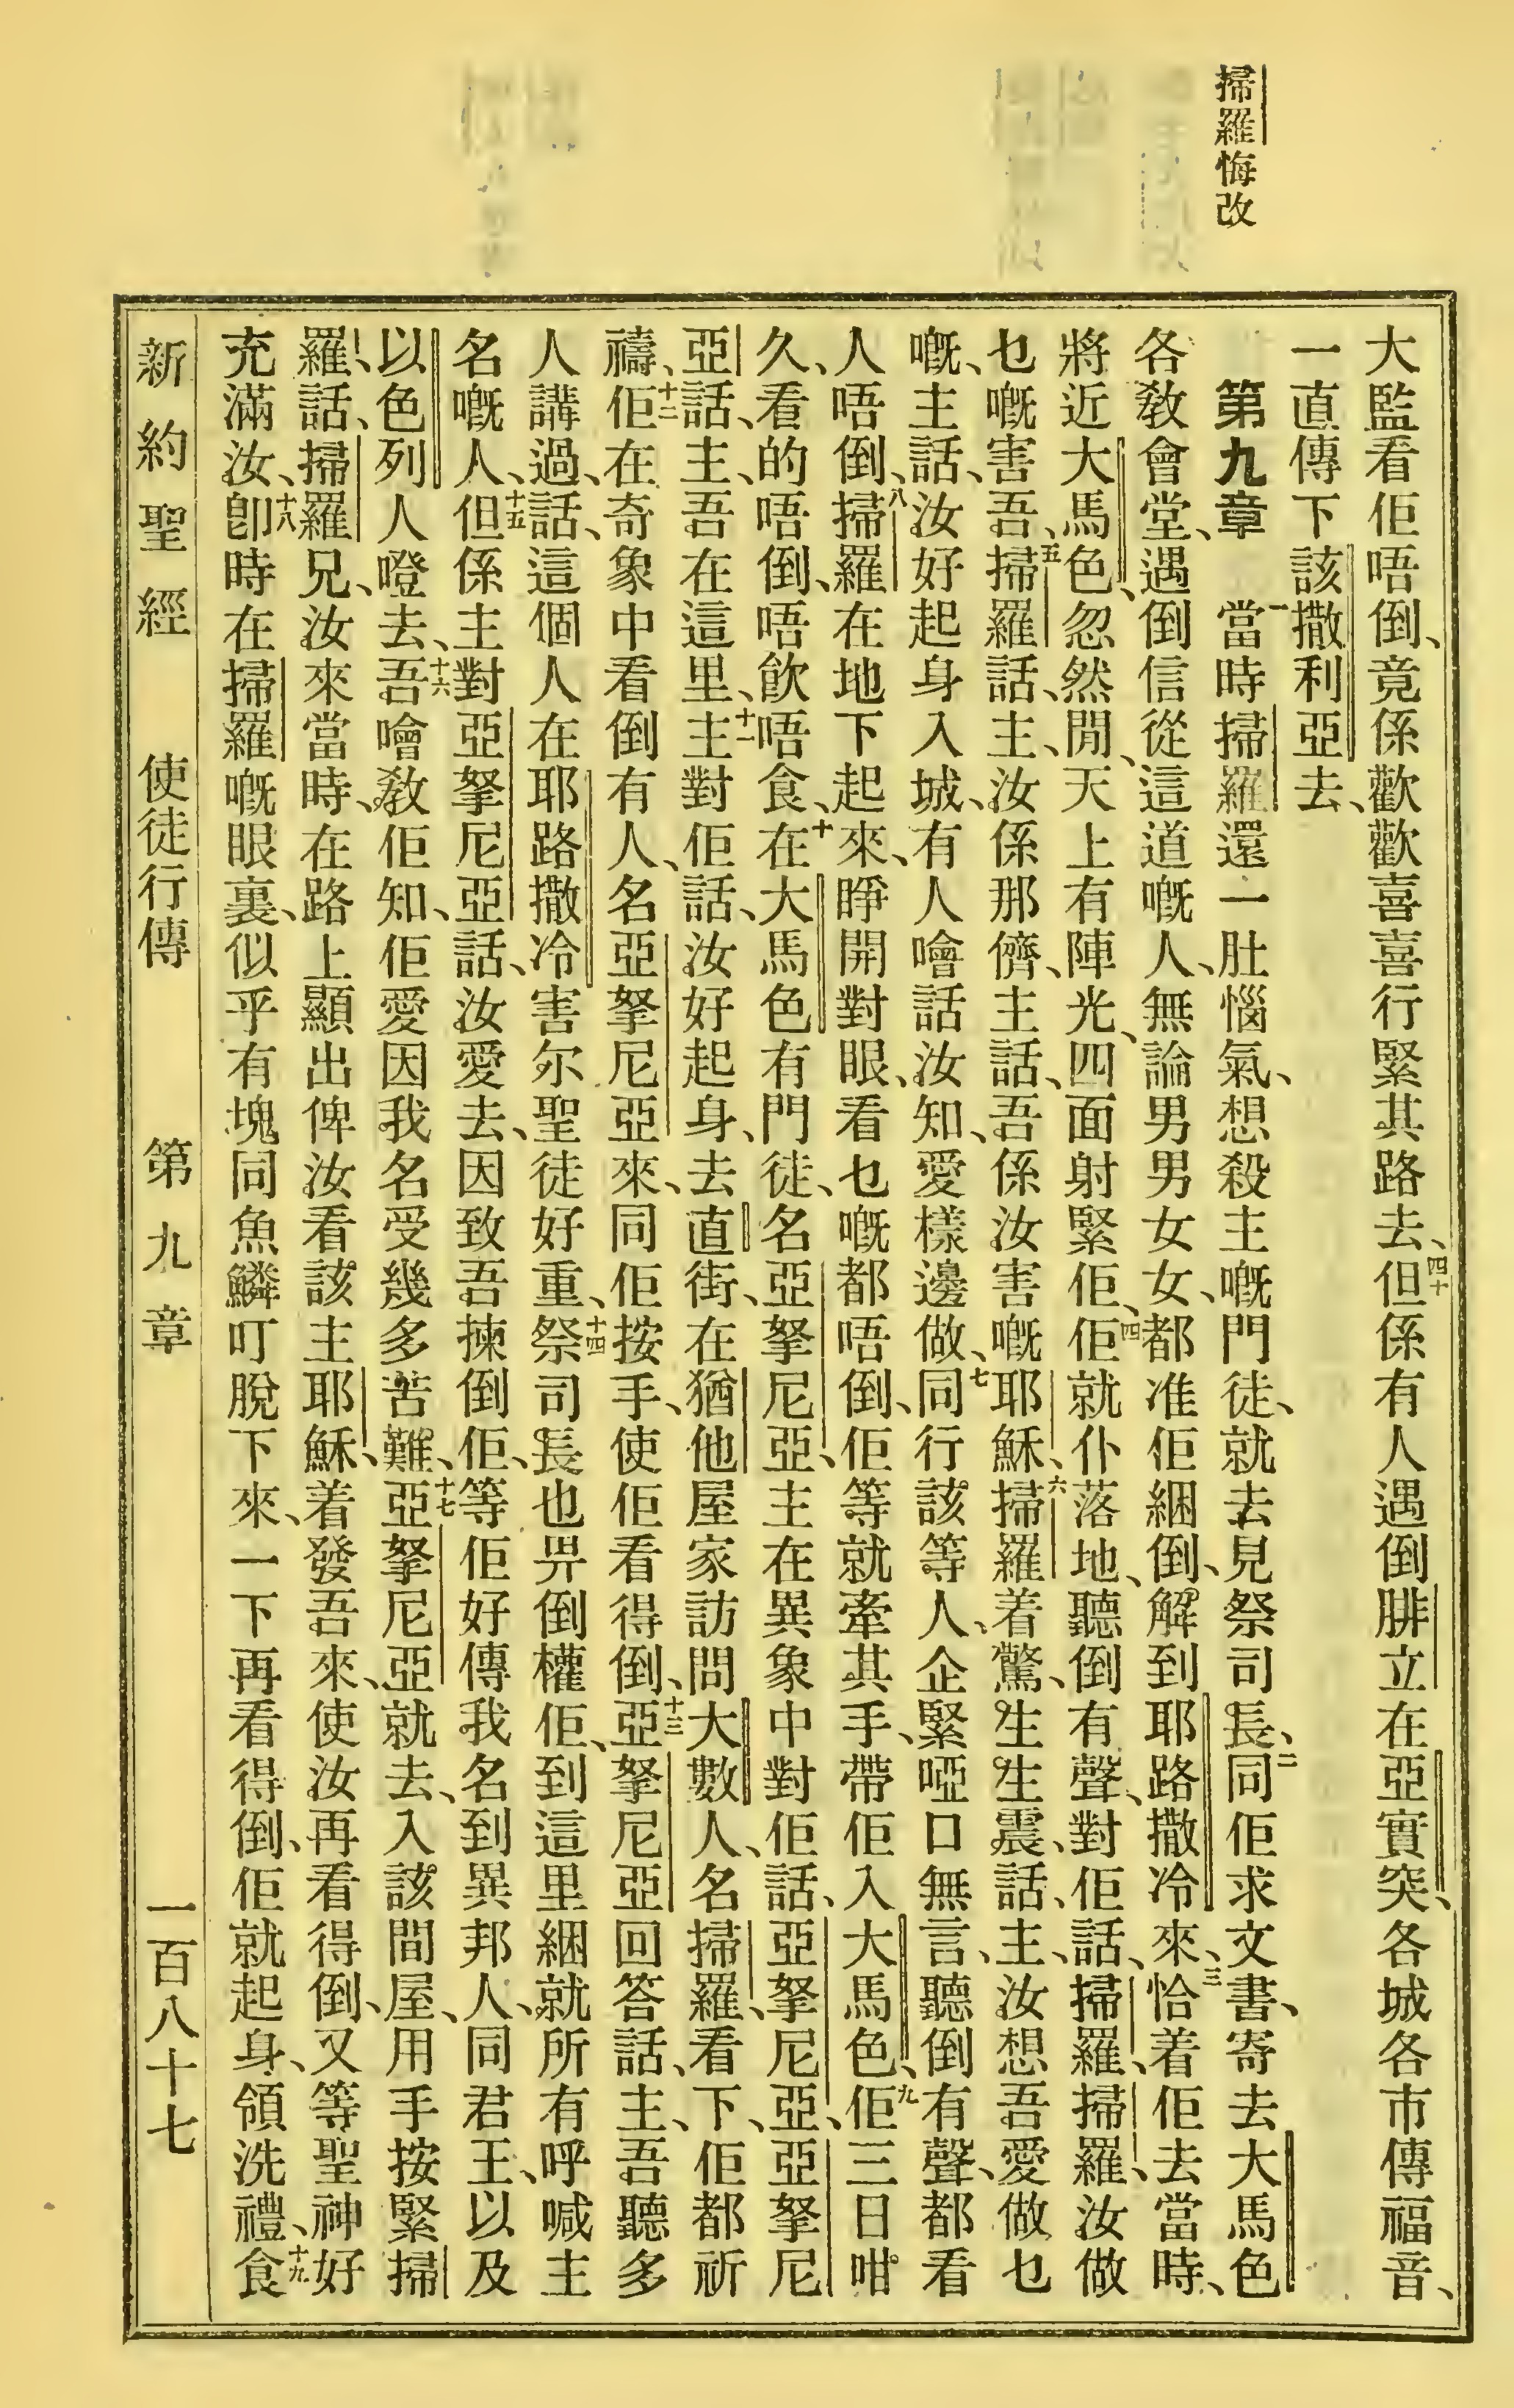 掃羅悔改
大監看佢唔倒、竟係歡歡喜喜行緊其路去、四十但係有人遇倒腓立在亞實突、各城各市傳福音、
一直傳下該撒利亞去、
第九章　一當時掃羅還一肚惱氣、想殺主嘅門徒、就去見祭司長、二同佢求文書、寄去大馬色
各教會堂、遇倒信從這道嘅人、無論男男女女、都准佢綑倒、解到耶路撒冷來、三恰着佢去當時、
將近大馬色、忽然間、天上有陣光、四面射緊佢、四佢就仆落地、聽倒有聲、對佢話、掃羅、掃羅、汝做
乜嘅害吾、五掃羅話、主、汝係那儕、主話、吾係汝害嘅耶穌、六掃羅着驚、生生震、話、主、汝想吾愛做乜
嘅、主話、汝好起身入城、有人噲話汝知、愛樣邊做、七同行該等人、企緊啞口無言、聽倒有聲、都看
人唔倒、八掃羅在地下起來、睜開對眼、看乜嘅都唔倒、佢等就牽其手、帶佢入大馬色、九佢三日咁
久、看的唔倒、唔飲唔食、十在大馬色有門徒、名亞拏尼亞、主在異象中對佢話、亞拏尼亞、亞拏尼
亞話、主、吾在這里、十一主對佢話、汝好起身、去直街、在猶他屋家訪問大數人、名掃羅、看下、佢都祈
禱、十二佢在奇象中看倒有人、名亞拏尼亞來、同佢按手、使佢看得倒、十三亞拏尼亞回答話、主、吾聽多
人講過、話、這個人在耶路撒冷害尔聖徒好重、十四祭司長也畀倒權佢、到這里綑就所有呼喊主
名嘅人、十五但係主對亞拏尼亞話、汝愛去、因致吾揀倒佢、等佢好傳我名到異邦人、同君王、以及
以色列人噔去、十六吾噲教佢知、佢愛因我名受幾多苦難、十七亞拏尼亞就去、入該間屋、用手按緊掃
羅、話、掃羅兄、汝來當時、在路上顯出俾汝看該主耶穌、着發吾來、使汝再看得倒、又等聖神好
充滿汝、十八卽時在掃羅嘅眼裏、似乎有塊同魚鱗叮脫下來、一下再看得倒、佢就起身、領洗禮、十九食
新約聖經　使徒行傳　第九章　一百八十七